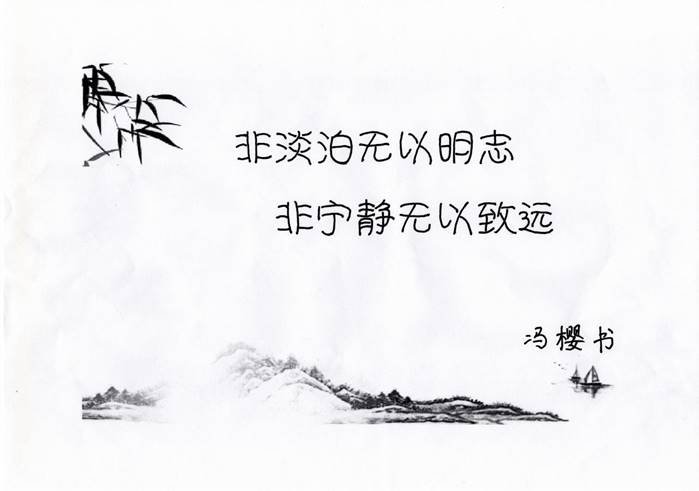 非淡泊无以明志
非宁静无以致远
冯樱书